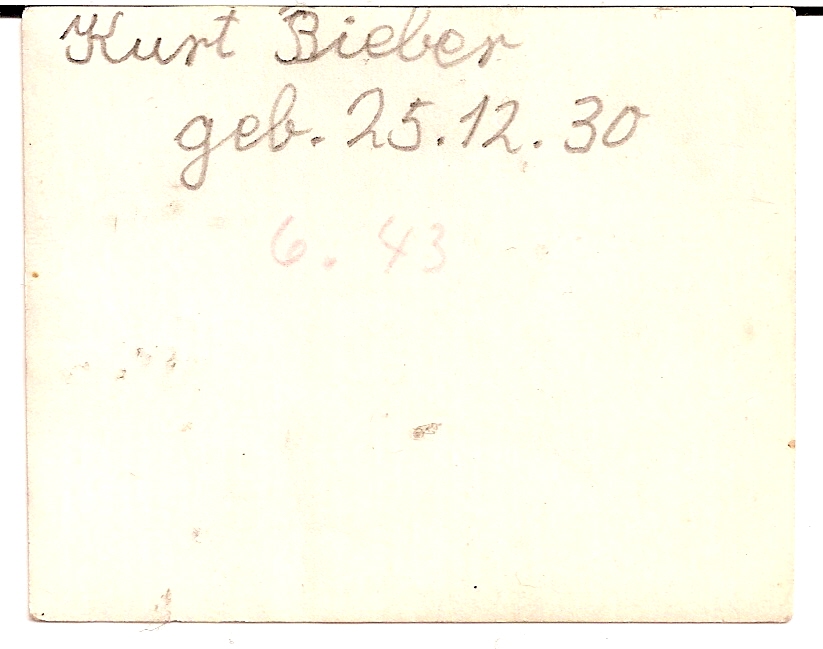 Kurt Bieber
geb. 25.12.30
6. 43